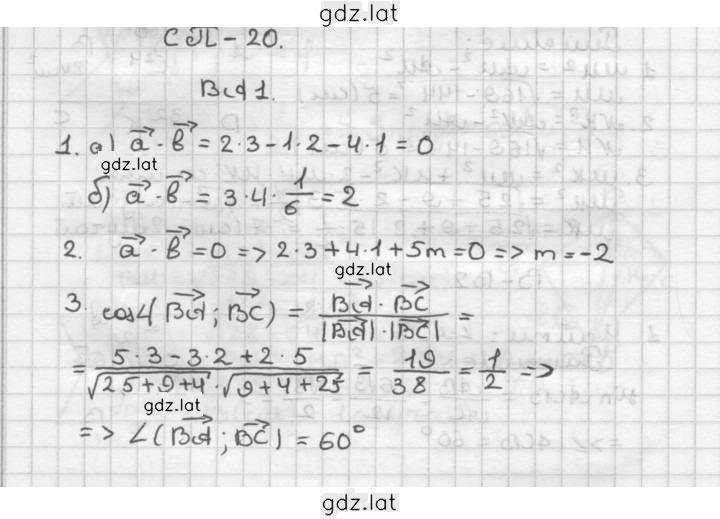 gdz.lat
СП-20.
ВА1.
1. а) a⃗ · b⃗ = 2·3-1·2-4·1=0
gdz.lat
б) a⃗ · b⃗ = 3·4·1/6=2
2. a⃗ · b⃗ =0 => 2·3+4·1+5m=0 => m=-2
gdz.lat
3. cos∠(BA⃗; BC⃗) = (BA⃗ · BC⃗)/(|BA⃗|·|BC⃗|) =
= (5·3-3·2+2·5)/(√(25+9+4)·√(9+4+25)) = 19/38 = 1/2 =>
gdz.lat
=> ∠(BA⃗; BC⃗) = 60°
gdz.lat